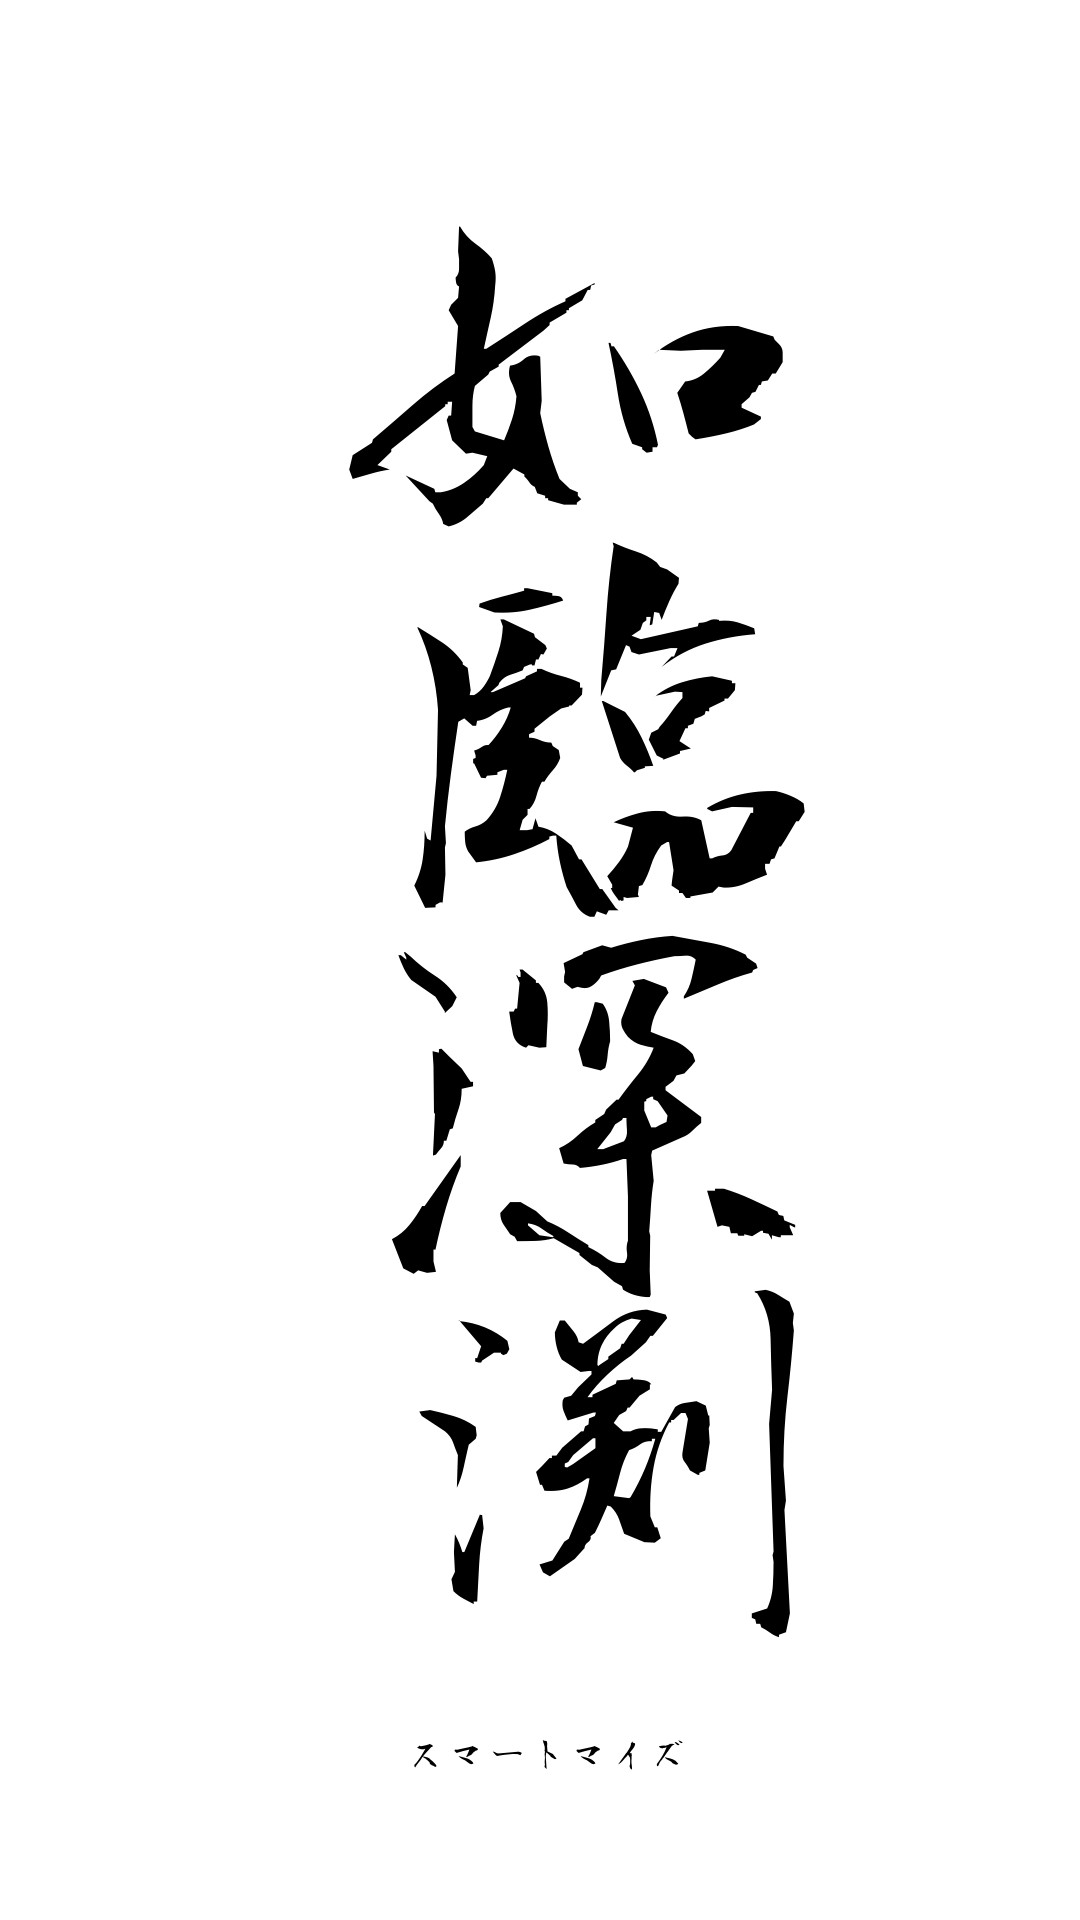 如臨深渕
スマートマイズ